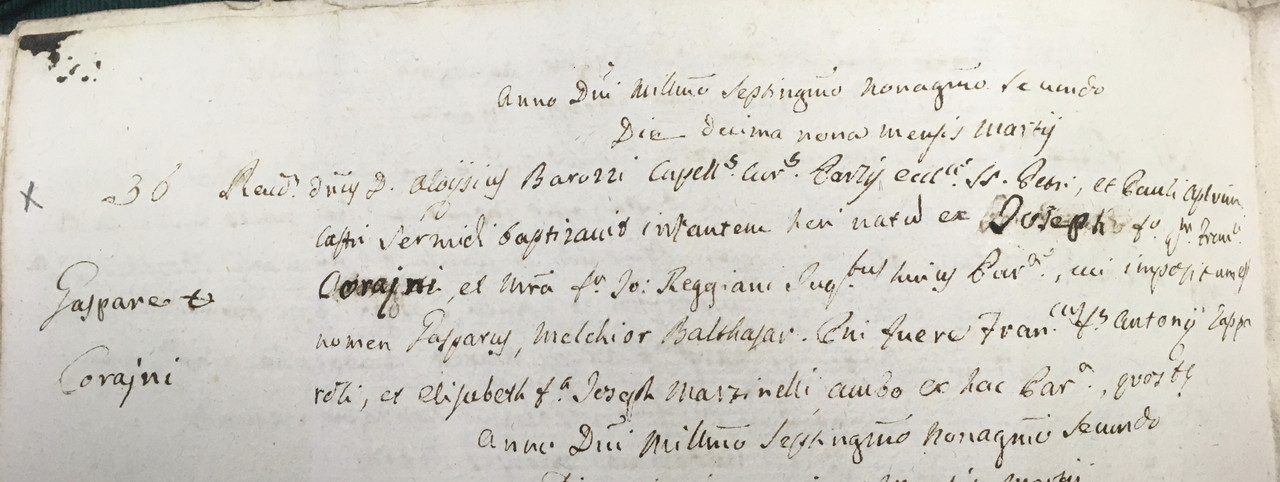 Anno Dni Millmo Septingmo Nonagmo Secundo
Die decima nona mensis Martij
36 Reuds. dnus D. Aloysius Barozzi Capells. Curs. Parlis eccle. SS. Petri, et Pauli Aplorum
Castri Sermidi baptizauit infantem heri natu ex Joseph fo. qm. Franci.
Corajni, et Mra fa. Jo: Reggiani Jugbus huius Parae., cui impositum est
Gaspare +
nomen Gasparus, Melchior Balthasar. Pni fuere Francus fs. Antonij Zappa
Corajni
roli, et Elisabeth fa. Joseph Marzinelli ambo ex hac Para., quos
Anno Dni Millmo Septingmo Nonagmo Secundo